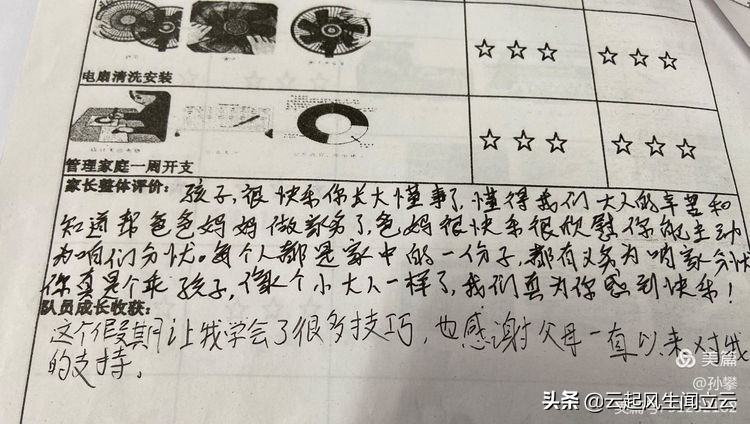 电扇清洗安装
☆ ☆ ☆ ☆ ☆ ☆
管理家庭一周开支
☆ ☆ ☆ ☆ ☆ ☆
家长整体评价：孩子，很快乐你长大懂事了，懂得我们大人的辛苦和
知道帮爸爸妈妈做家务了，爸妈很快乐很欣慰你能主动
为咱们分忧。每个人都是家中的一份子，都有义务为咱家分忧
你真是个乖孩子，像个小大人一样了，我们真为你感到快乐！
队员成长收获：
这个假期让我学会了很多技巧，也感谢父母一直以来对我
的支持。
美篇
@孙攀
头条 @云起风生闻立云